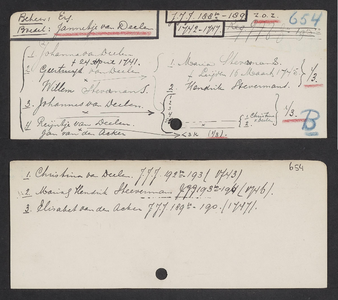 Beheer: Erf.
Breuk: Jannetje van Deelen
777 188ᵛ-189
202
654
1742-1747
1. Johanna van Deelen
+ 24 April 1741.
2. Geertruijt van Deelen
Willem Stevermann S.
3. Johannes van Deelen
4. Reijntje van Deelen
Jan van den Acker
1. Maria Stevermann S.
+ Leyden 16 Maart 1746
Hendrik Stevermans.
2
1/3.
1. Christina
2. Deelen
1/3.
B
654
1. Christina van Deelen 777 192ᵛ-193 (1743)
2. Maria & Hendrik Steevermann 777 193ᵛ-194 (1746).
3. Elisabet van den Acker 777 189ᵛ-190. (1747).